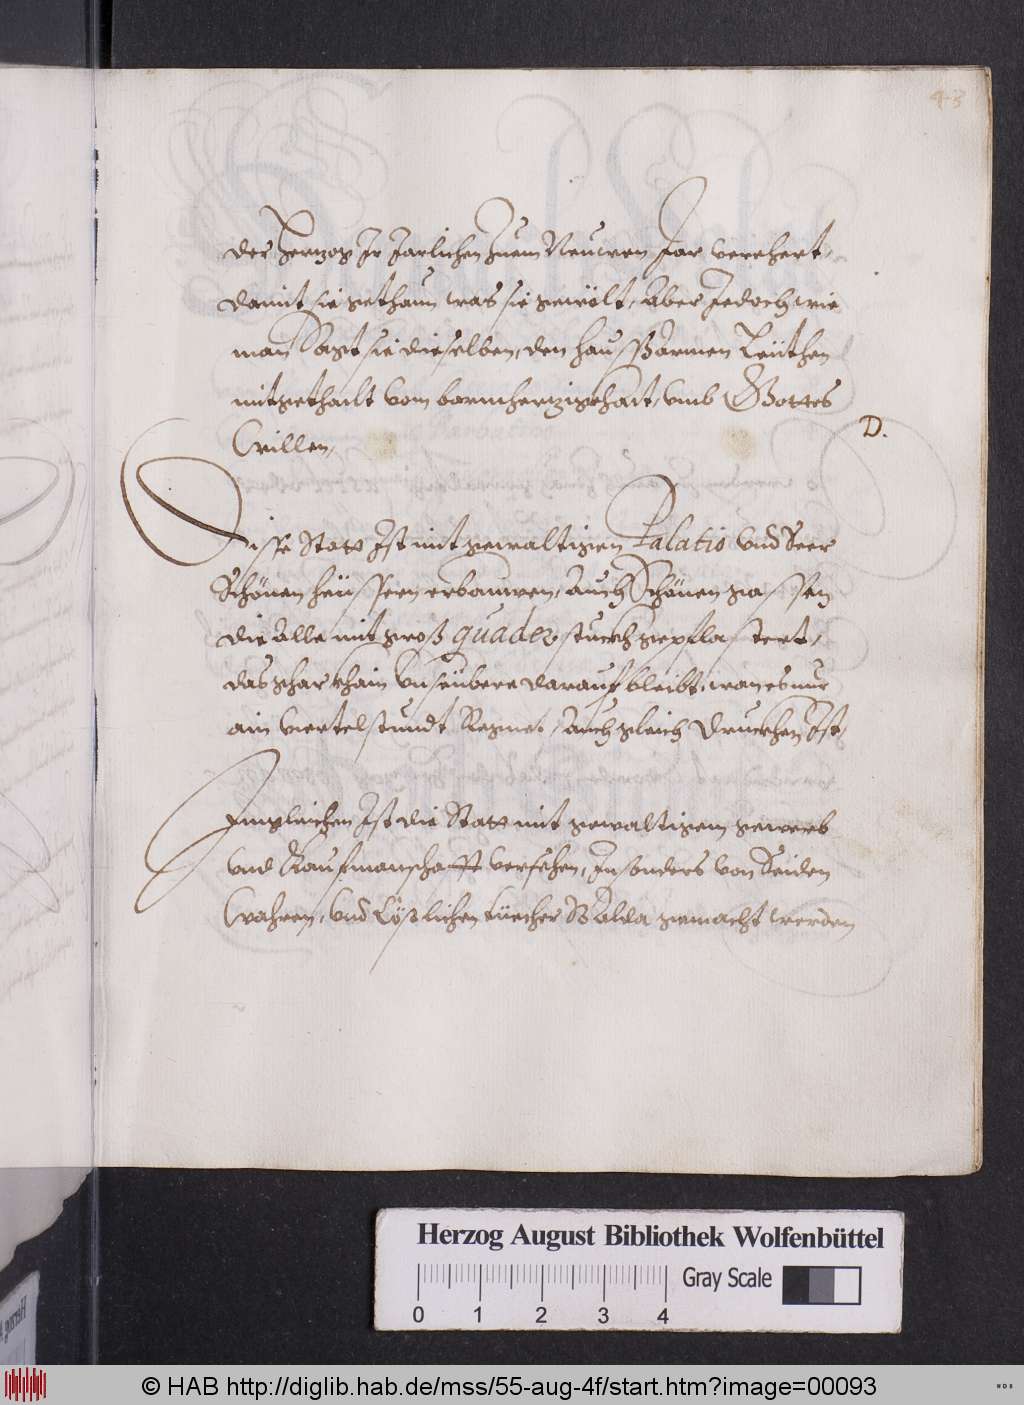 43
der Herzog Ir Jarlichen Zuem Neuwen Jar verehert,
damit sie gethaun was sie gewölt, Aber Jedoch wie
man Sagt sie dieselben, den hauß Armen Leüthen
mitgethailt vom barmherzigkhait, vmb Gottes
Willen,
D.
Disse Statt Ist mit gewaltigen Palatio Vnd Seer
Schönen heüssern erbauwen, Auch Schönen gassen
die Alle mit groß quader stuckh gepflastert,
das ghar khain Vnseübere darauf bleibt, wan es nur
ain Viertelstundt Regnet, Auch gleich Druckhen Ist,
Imgleichen Ist die Statt mit gewaltigem gewerb
Vnd Kaufmanschafft versehen, Insonders von Seiden
Wahren, Vnd Cöstlichen tüecher Alda gemacht werden
Herzog August Bibliothek Wolfenbüttel
Gray Scale
0 1 2 3 4
© HAB http://diglib.hab.de/mss/55-aug-4f/start.htm?image=00093